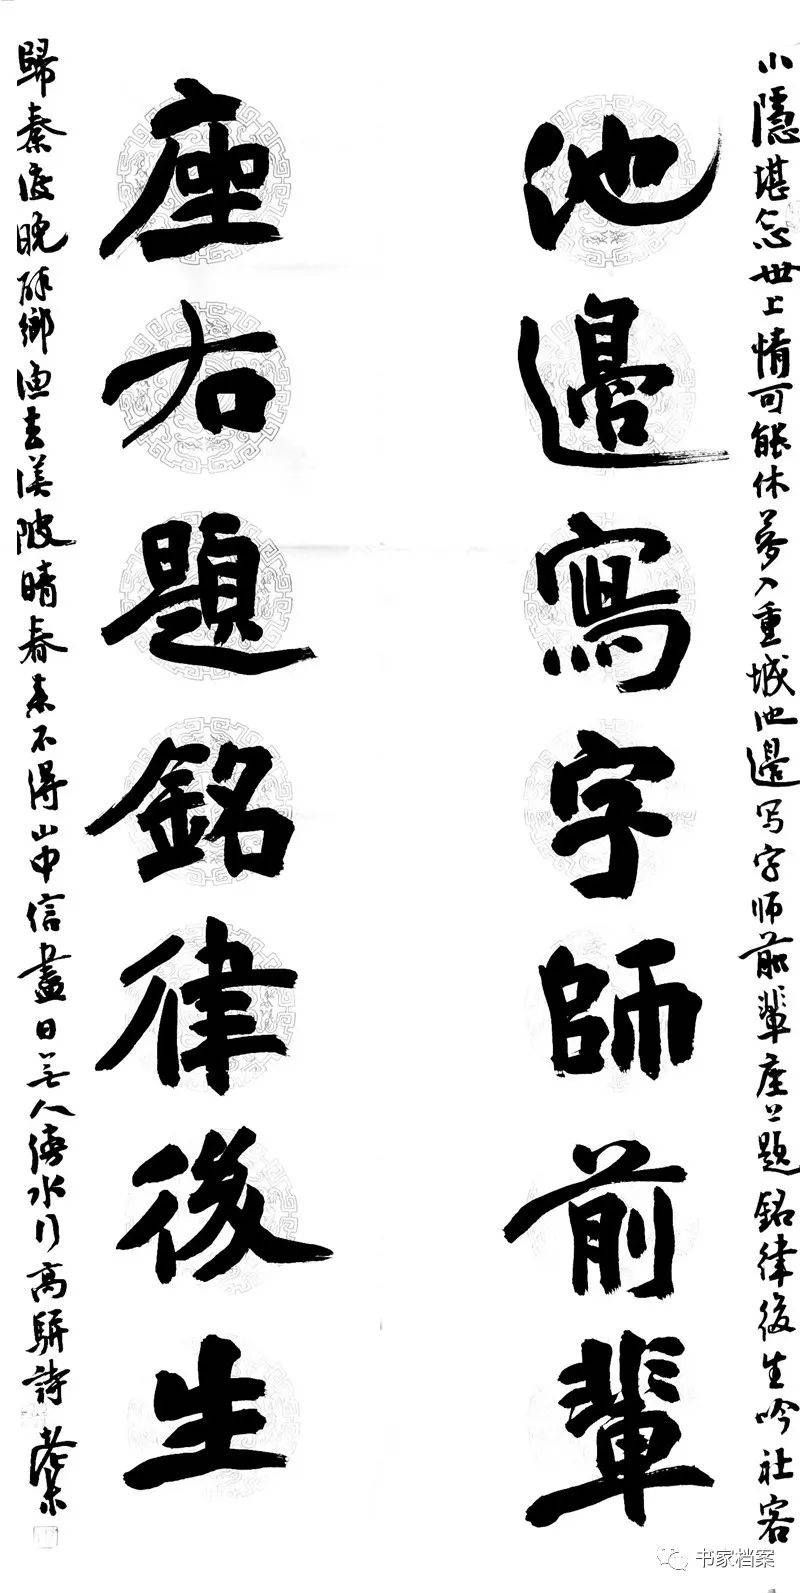 小隱堪忘世上情可能休夢入重城池邊写字师前輩座右題銘律後生吟社客
池邊寫字師前輩
座右題銘律後生
歸秦渡晚醉鄉漁去渼陂晴春来不得山中信盡日無人傍水行高駢詩
书家档案